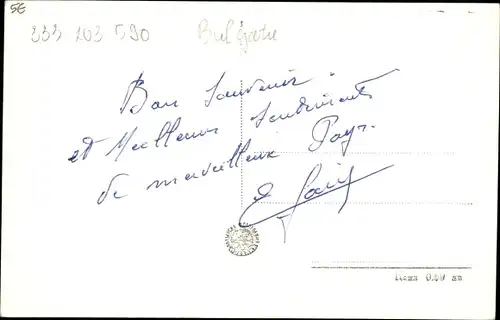 5€
333 203 590
Bulgarie
Bon Souvenir
et Meilleurs Sentiments
de merveilleux Pays.
Цена 0.09 лв